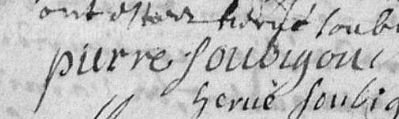 ont ester hervé soubi
pierre soubigou
hervé soubig